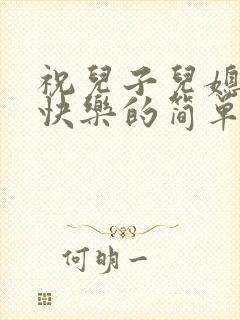 祝兒子兒媳
快樂的簡單
何明一